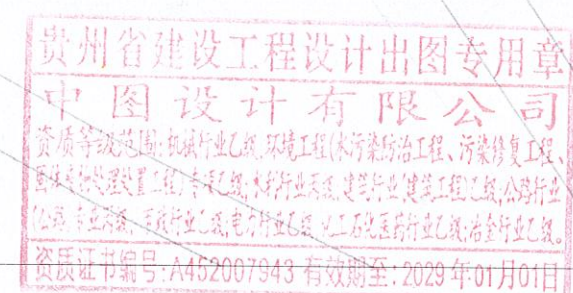 贵州省建设工程设计出图专用章
中图设计有限公司
资质等级范围:机械行业乙级,环境工程(水污染防治工程、污染修复工程、
固体废物处理处置工程)专项乙级;水利行业丙级,建筑行业(建筑工程)乙级;公路行业
(公路)专业丙级,市政行业乙级;电力行业乙级,化工石化医药行业乙级;冶金行业乙级。
资质证书编号:A452007943 有效期至:2029年01月01日